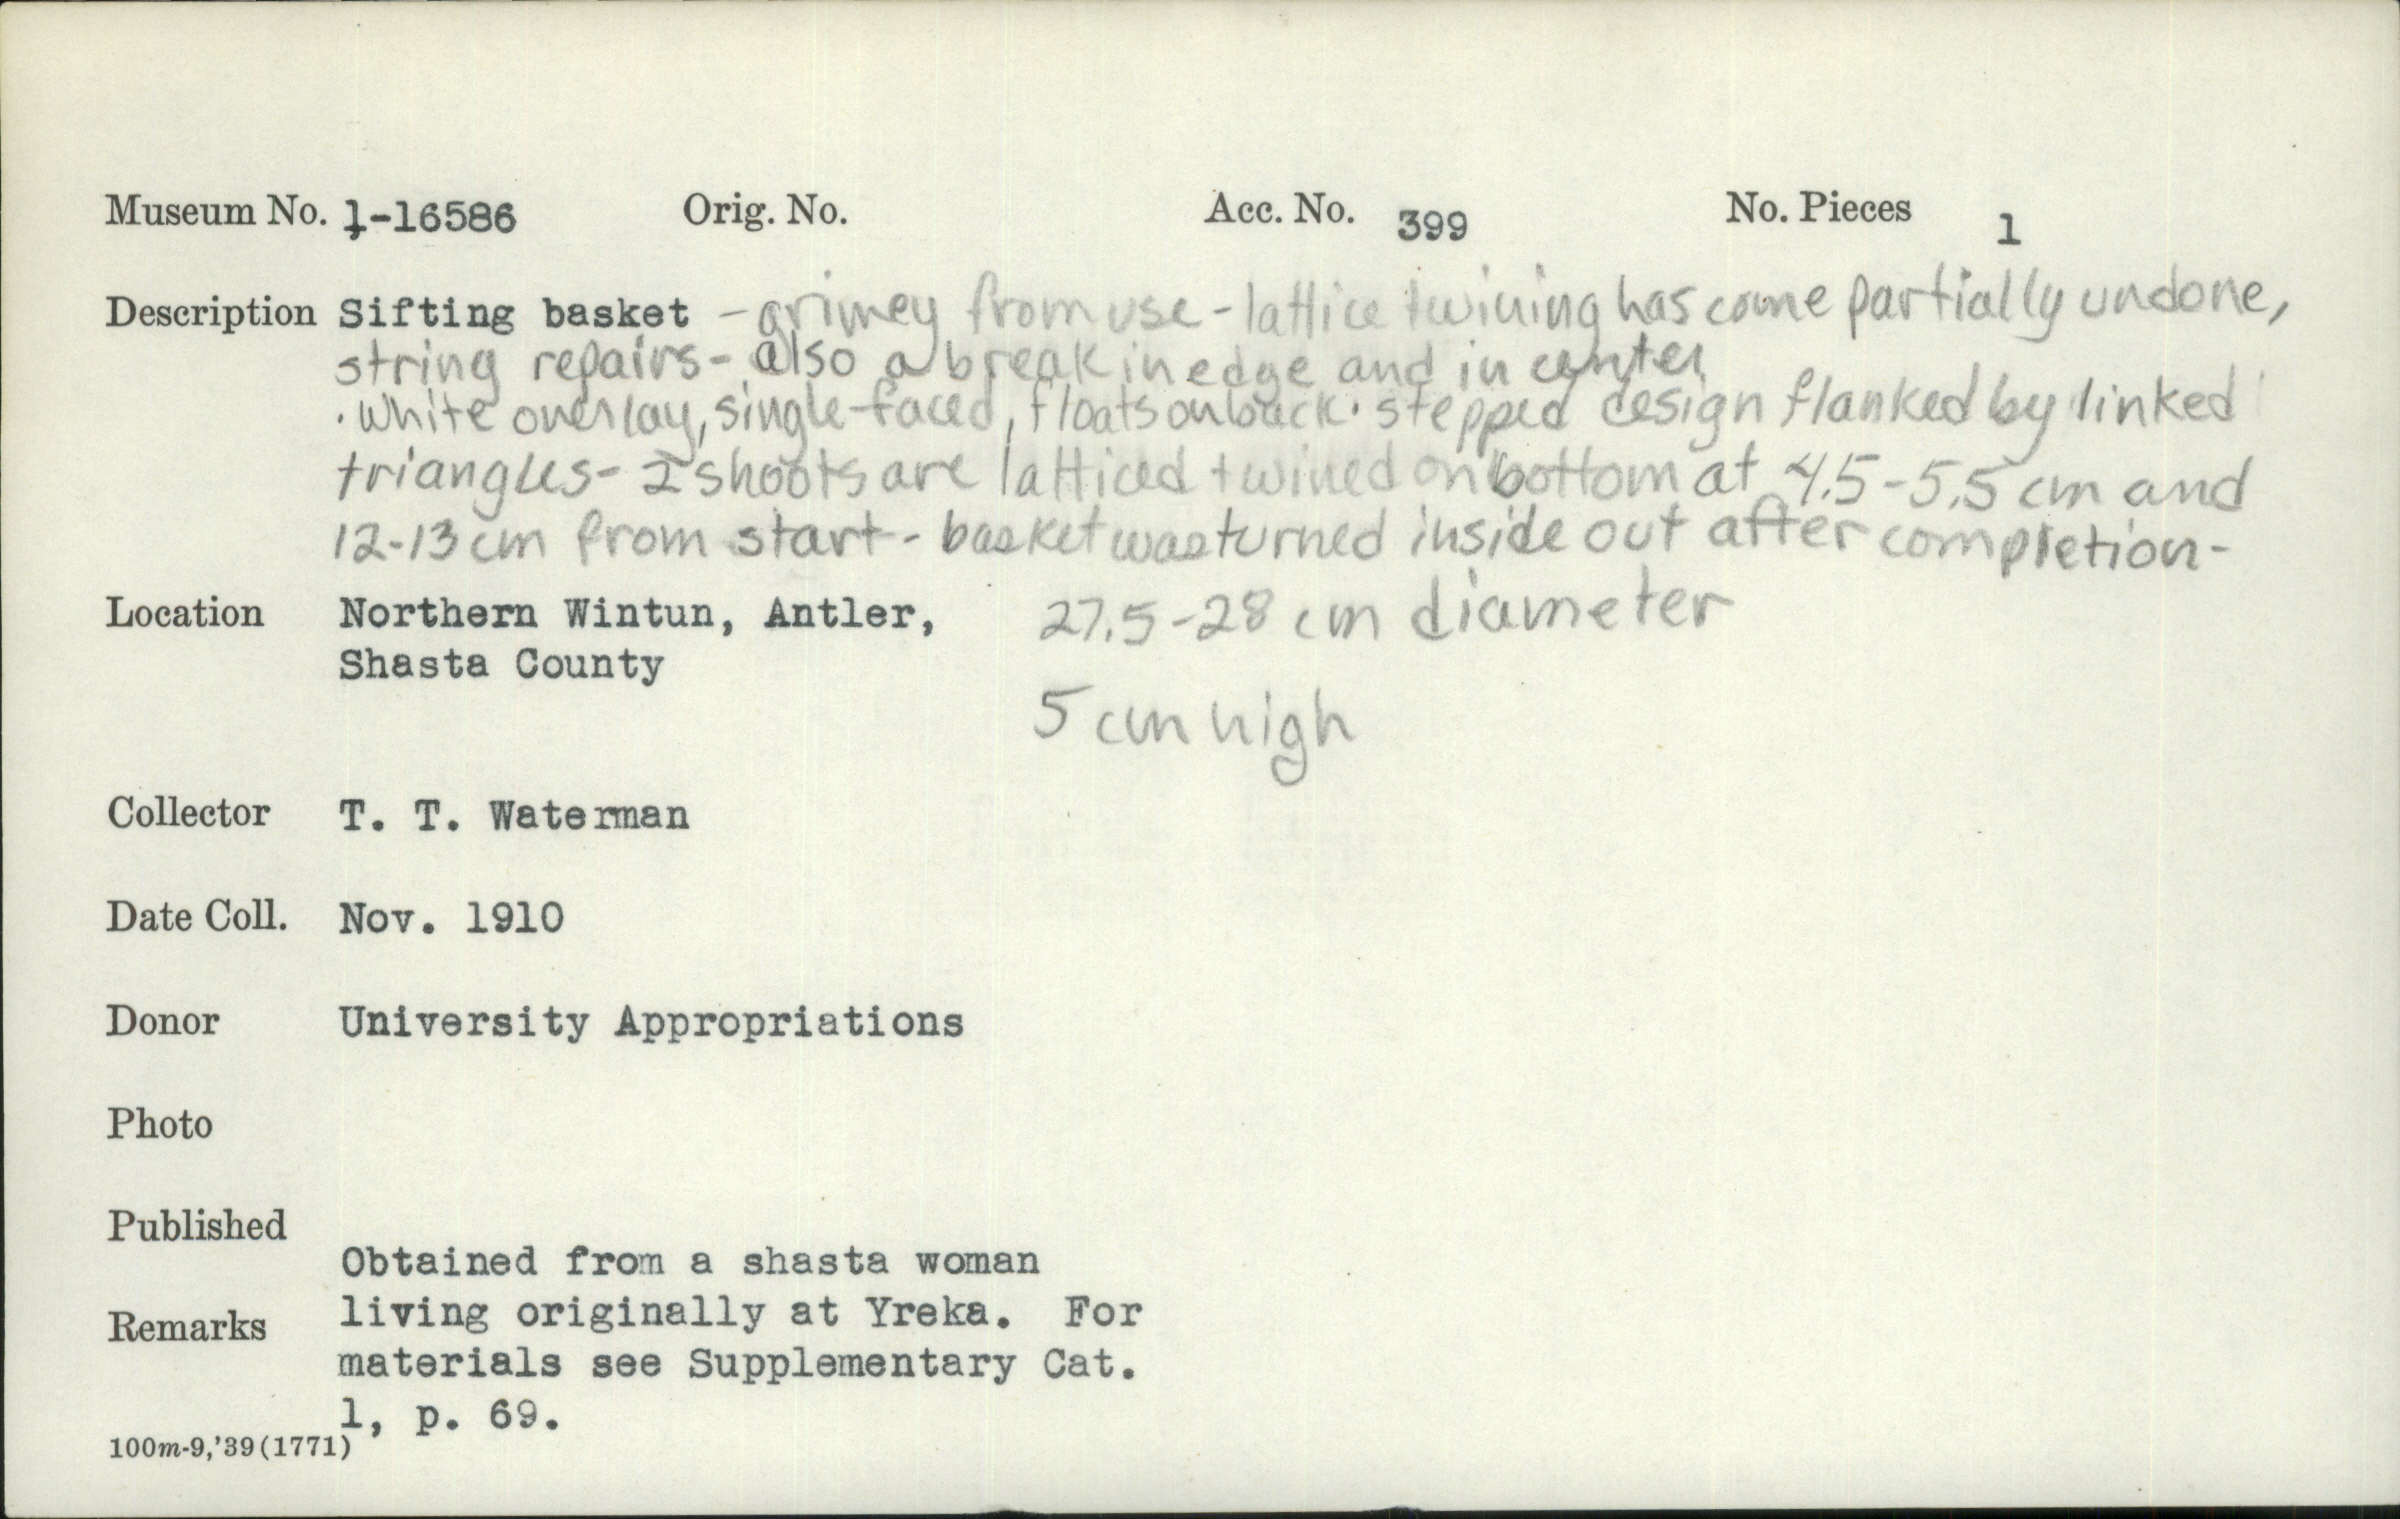 Museum No. 1-16586 Orig. No. Acc. No. 399 No. Pieces 1
Description Sifting basket - grimey from use - lattice twining has come partially undone,
string repairs - also a break in edge and in center
. White overlay, single-faced, floats on back. stepped design flanked by linked
triangles - 2 shoots are latticed twined on bottom at 4.5-5.5 cm and
12-13 cm from start - basket was turned inside out after completion -
Location Northern Wintun, Antler, 27.5-28 cm diameter
Shasta County
5 cm high
Collector T. T. Waterman
Date Coll. Nov. 1910
Donor University Appropriations
Photo
Published
Obtained from a shasta woman
Remarks living originally at Yreka. For
materials see Supplementary Cat.
1, p. 69.
100m-9,'39(1771)